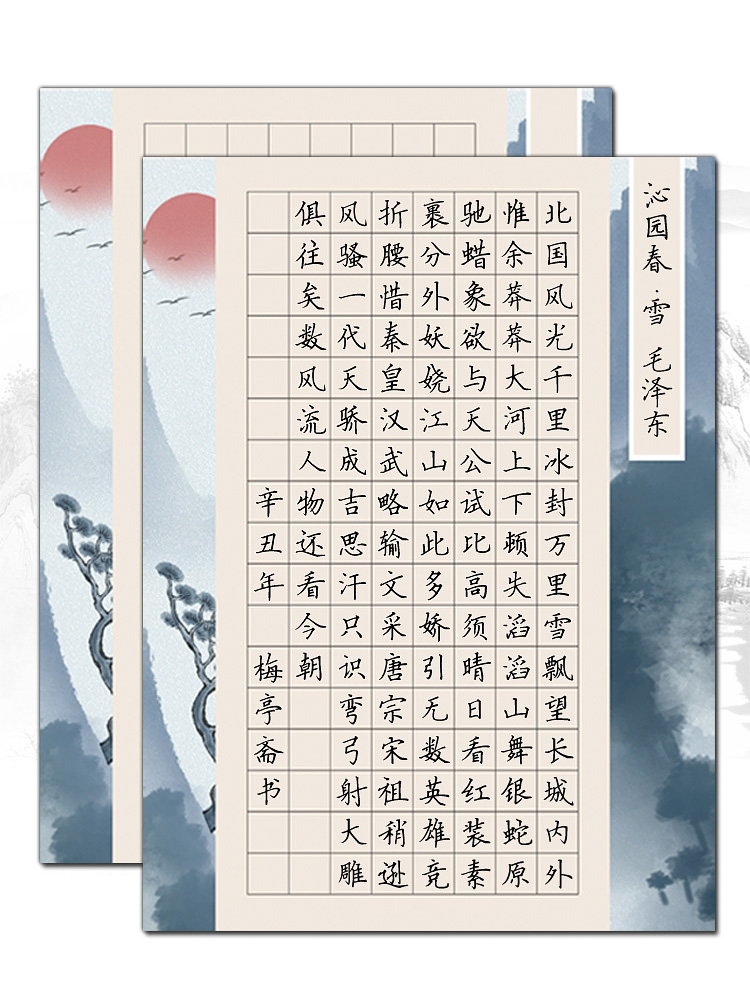 沁园春·雪 毛泽东
北国风光千里冰封万里雪飘望长城内外
惟余莽莽大河上下顿失滔滔山舞银蛇原
驰蜡象欲与天公试比高须晴日看红装素
裹分外妖娆江山如此多娇引无数英雄竞
折腰惜秦皇汉武略输文采唐宗宋祖稍逊
风骚一代天骄成吉思汗只识弯弓射大雕
俱往矣数风流人物还看今朝
辛丑年 梅亭斋书